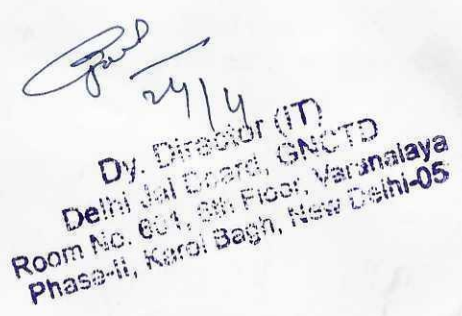 24/4
Dy. Director (IT)
Delhi Jal Board, GNCTD
Room No. 601, 6th Floor, Varunalaya
Phase-II, Karol Bagh, New Delhi-05